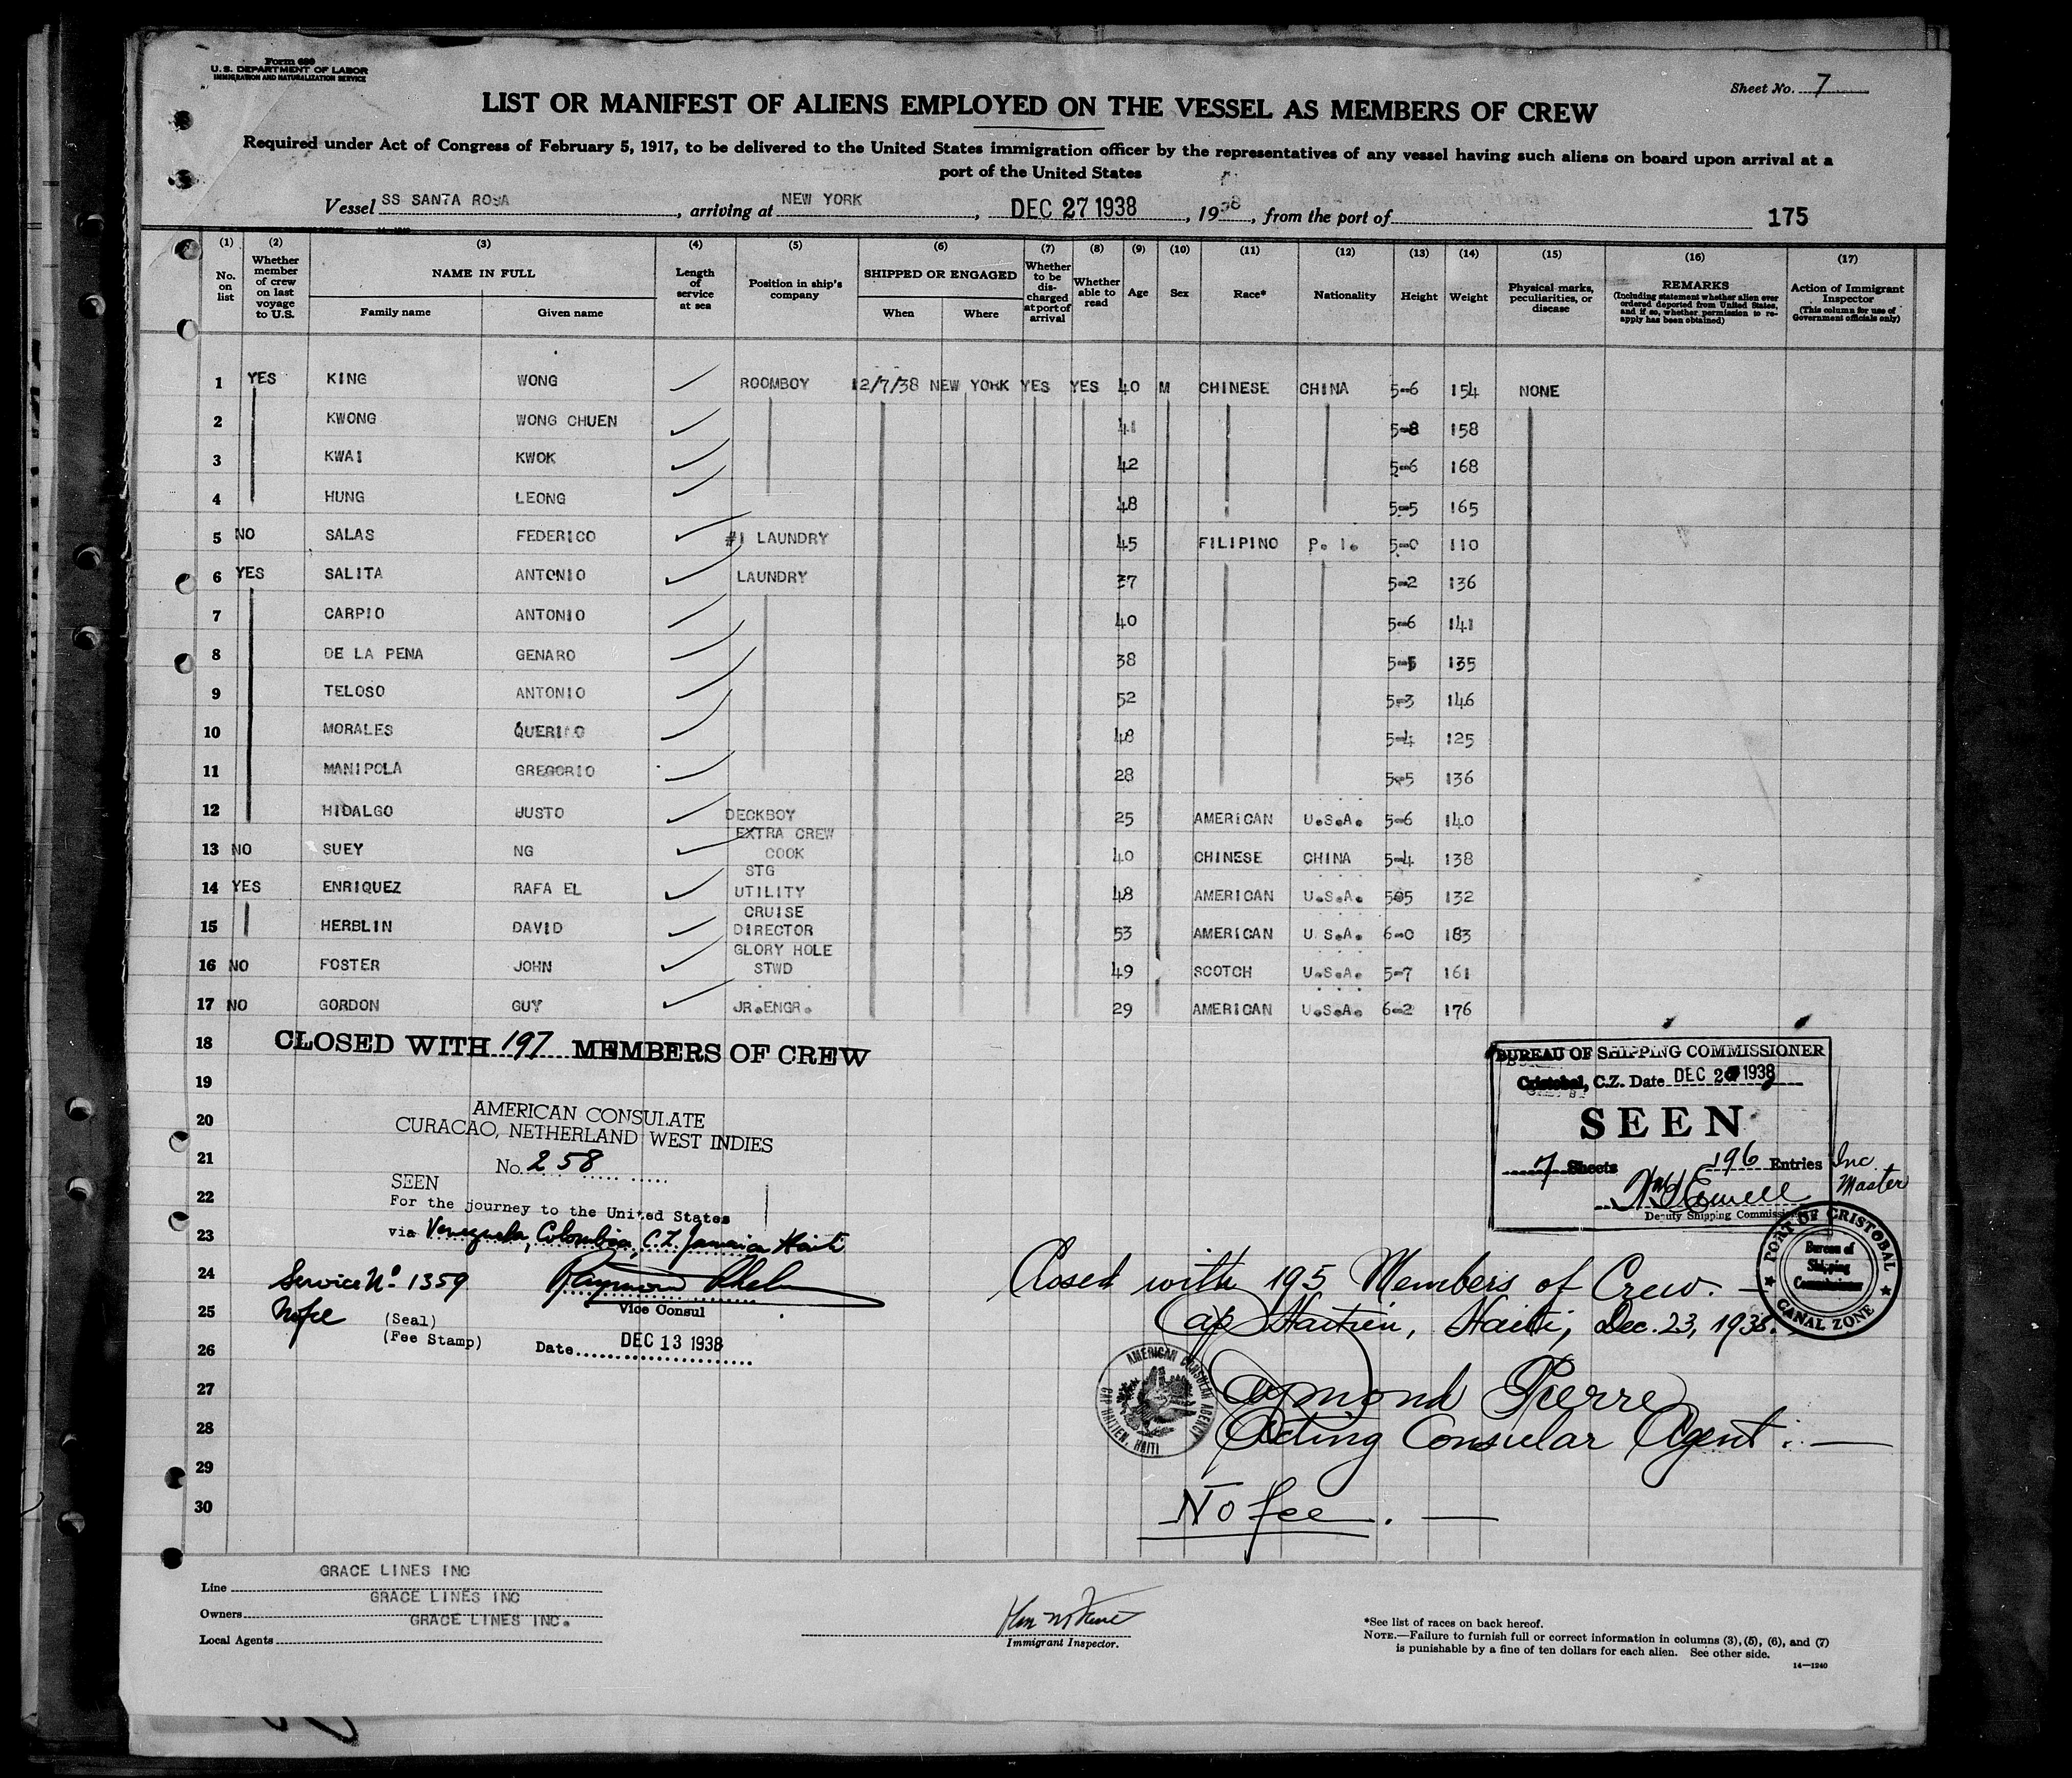 Form 689
U. S. DEPARTMENT OF LABOR
IMMIGRATION AND NATURALIZATION SERVICE
Sheet No. 7
LIST OR MANIFEST OF ALIENS EMPLOYED ON THE VESSEL AS MEMBERS OF CREW
Required under Act of Congress of February 5, 1917, to be delivered to the United States immigration officer by the representatives of any vessel having such aliens on board upon arrival at a
port of the United States
Vessel SS SANTA ROSA, arriving at NEW YORK, DEC 27 1938, 1938, from the port of 175
(1) (2) (3) (4) (5) (6) (7) (8) (9) (10) (11) (12) (13) (14) (15) (16) (17)
No. on list
Whether member of crew on last voyage to U.S.
NAME IN FULL
Family name Given name
Length of service at sea
Position in ship's company
SHIPPED OR ENGAGED
When Where
Whether to be discharged at port of arrival
Whether able to read
Age
Sex
Race*
Nationality
Height
Weight
Physical marks, peculiarities, or disease
REMARKS
(Including statement whether alien ever ordered deported from United States, and if so, whether permission to re-apply has been obtained)
Action of Immigrant Inspector
(This column for use of Government officials only)
1 YES KING WONG ROOMBOY 12/7/38 NEW YORK YES YES 40 M CHINESE CHINA 5-6 154 NONE
2 KWONG WONG CHUEN 41 5-8 158
3 KWAI KWOK 42 5-6 168
4 HUNG LEONG 48 5-5 165
5 NO SALAS FEDERICO #1 LAUNDRY 45 FILIPINO P. I. 5-0 110
6 YES SALITA ANTONIO LAUNDRY 37 5-2 136
7 CARPIO ANTONIO 40 5-6 141
8 DE LA PENA GENARO 38 5-5 135
9 TELOSO ANTONIO 52 5-3 146
10 MORALES QUERICO 48 5-4 125
11 MANIPOLA GREGORIO 28 5-5 136
12 HIDALGO JUSTO DECKBOY 25 AMERICAN U.S.A. 5-6 140
13 NO SUEY NG EXTRA CREW COOK 40 CHINESE CHINA 5-4 138
14 YES ENRIQUEZ RAFA EL STG UTILITY 48 AMERICAN U.S.A. 5-5 132
15 HERBLIN DAVID CRUISE DIRECTOR 53 AMERICAN U S.A. 6-0 183
16 NO FOSTER JOHN GLORY HOLE STWD 49 SCOTCH U.S.A. 5-7 161
17 NO GORDON GUY JR.ENGR. 29 AMERICAN U.S.A. 6-2 176
18 CLOSED WITH 197 MEMBERS OF CREW
19
20
21
22
23
24
25
26
27
28
29
30
AMERICAN CONSULATE
CURACAO, NETHERLAND WEST INDIES
No. 258
SEEN
For the journey to the United States
via Venezuela, Colombia, C.Z. Jamaica Haiti
Service No. 1359
Vice Consul
No fee
(Seal)
(Fee Stamp)
Date DEC 13 1938
BUREAU OF SHIPPING COMMISSIONER
Cristobal, C.Z. Date DEC 20 1938
SEEN
7 Sheets 196 Entries Inc. Master
Deputy Shipping Commissioner
PORT OF CRISTOBAL
Bureau of
Shipping
Commissioner
CANAL ZONE
Closed with 195 Members of Crew. —
Cap Haitien, Haiti, Dec. 23, 1938.
AMERICAN CONSULAR AGENCY
CAP HAITIEN, HAITI
Pierre
Acting Consular Agent. —
No fee. —
Line GRACE LINES INC
Owners GRACE LINES INC
Local Agents GRACE LINES INC.
Immigrant Inspector.
*See list of races on back hereof.
NOTE.—Failure to furnish full or correct information in columns (3), (5), (6), and (7)
is punishable by a fine of ten dollars for each alien. See other side.
14—1240